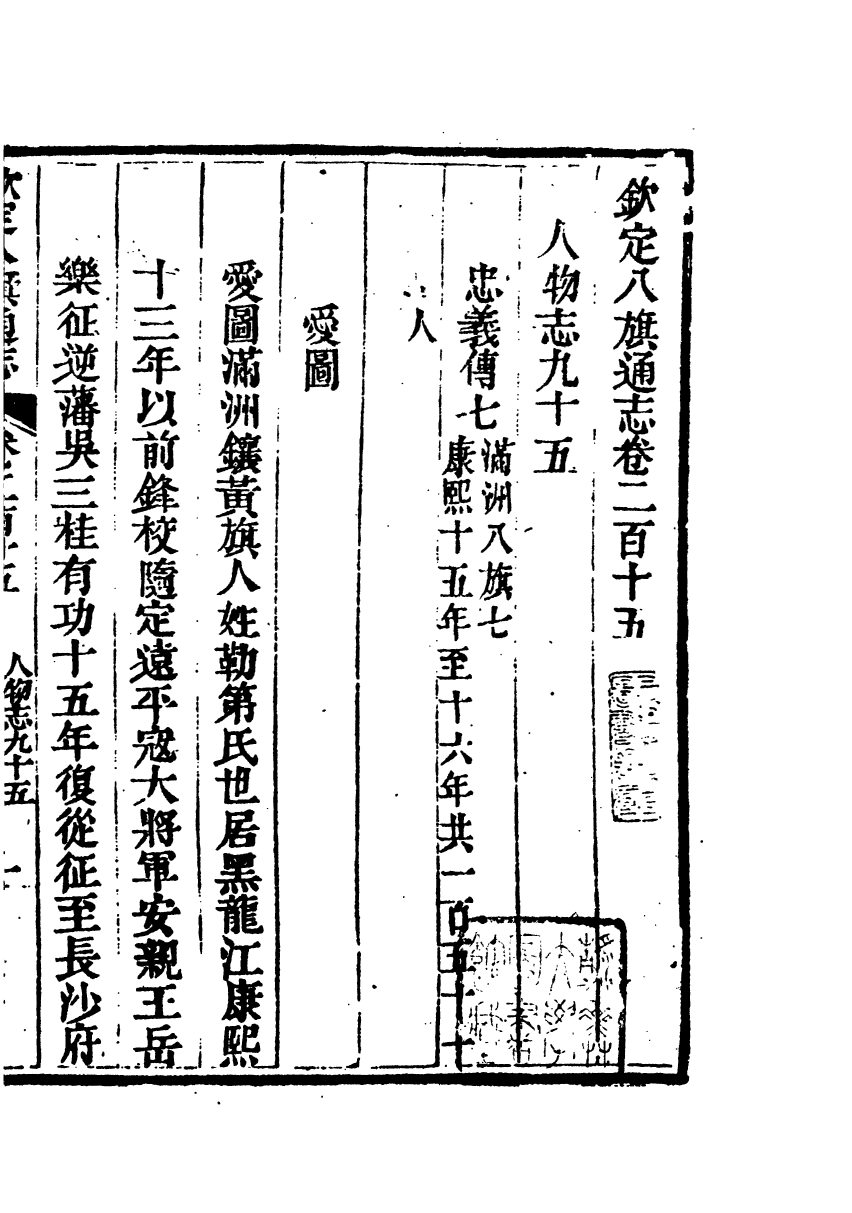 欽定八旗通志卷二百十五
人物志九十五
忠義傳七
滿洲八旗七
康熙十五年至十六年共一百五十七
人
愛圖
愛圖滿洲鑲黃旗人姓勒第氏也居黑龍江康熙
十三年以前鋒校隨定遠平寇大將軍安親王岳
樂征逆藩吳三桂有功十五年復從征至長沙府
欽定八旗通志
卷二百十五
人物志九十五
一